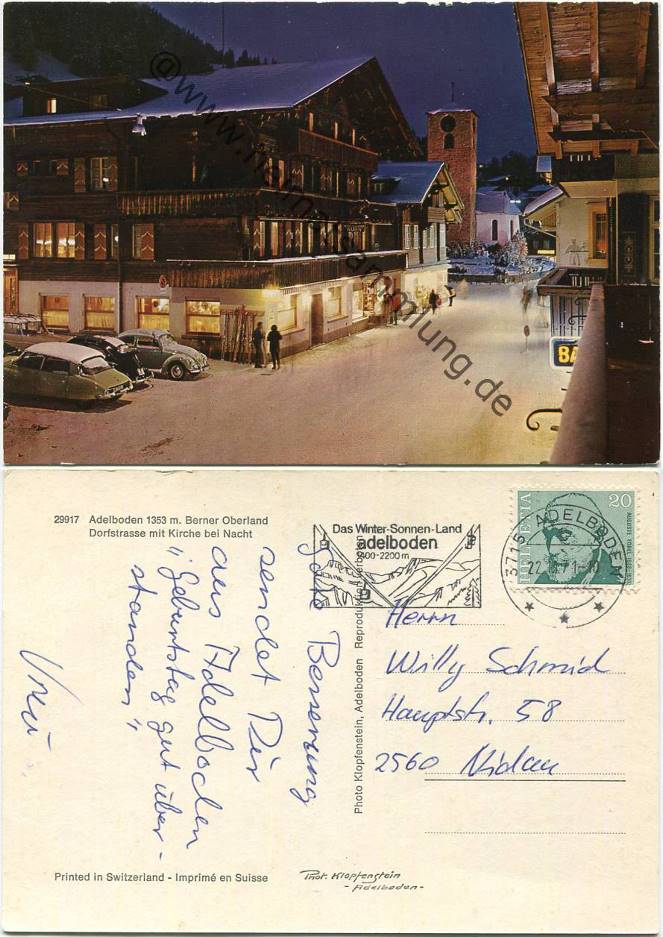 @www.heimatsammlung.de
BA
29917 Adelboden 1353 m. Berner Oberland
Dorfstrasse mit Kirche bei Nacht
Das Winter-Sonnen-Land
adelboden
1400-2200 m
3715 ADELBODEN
HELVETIA
20
Gute Besserung
sendet Dir
aus Adelboden
"Geburtstag gut über-
standen"
Herrn
Willy Schmid
Hauptstr. 58
2560 Nidau
Photo Klopfenstein, Adelboden Reproduktion verboten
Printed in Switzerland - Imprimé en Suisse
Phot. Klopfenstein
- Adelboden -